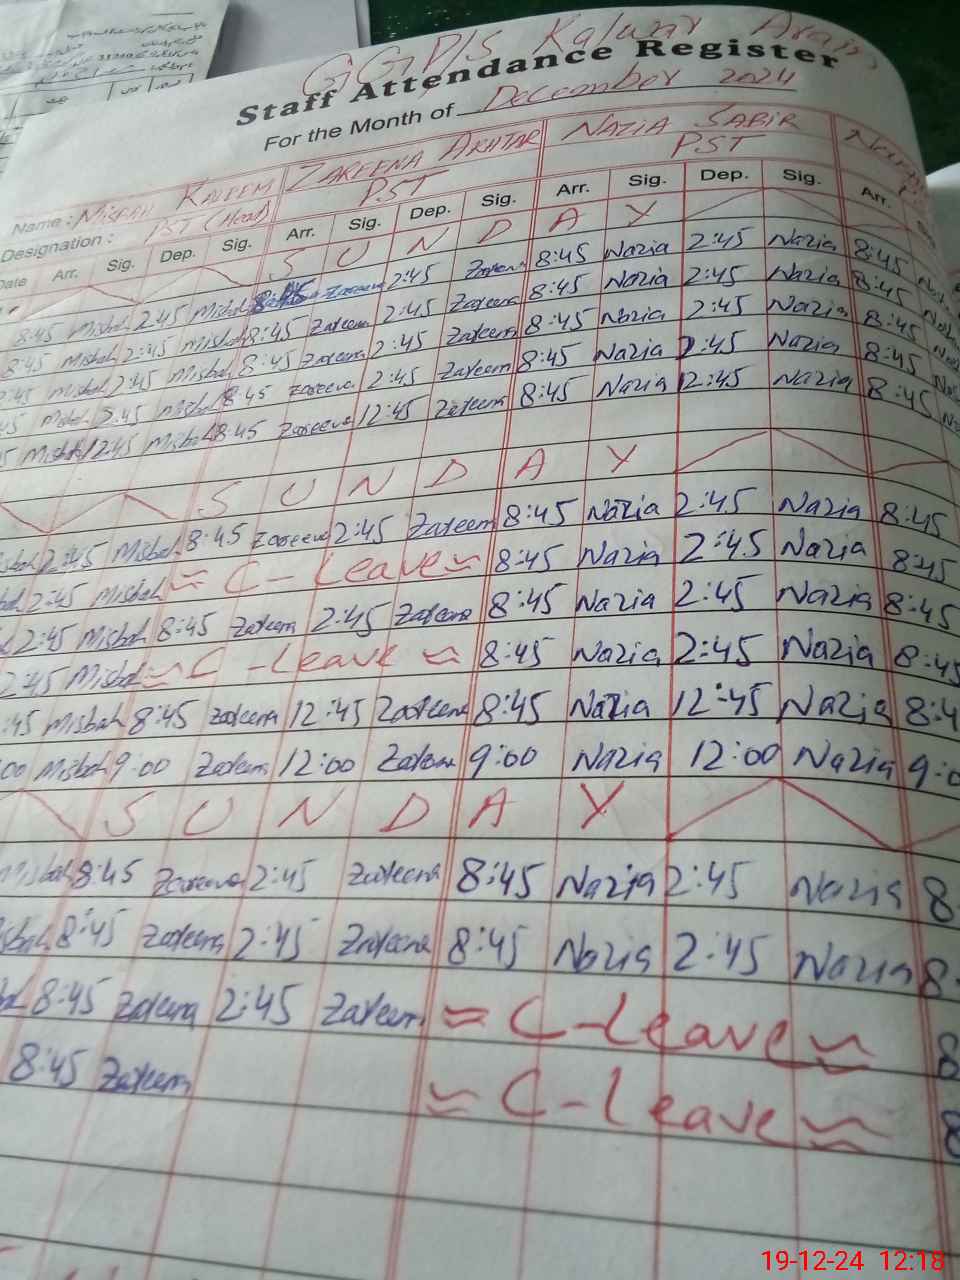 GGP/S Kalwar Arain
Staff Attendance Register
For the Month of December 2024
Name : Misbah Kaleem ZAREENA AKHTAR NAZIA SABIR
Designation : PST (Head) PST PST
Date Arr. Sig. Dep. Sig. Arr. Sig. Dep. Sig. Arr. Sig. Dep. Sig. Arr.
S U N D A Y
8:45 Misbah 2:45 Misbah 8:45 Zareena 2:45 Zareena 8:45 Nazia 2:45 Nazia 8:45
8:45 Misbah 2:45 Misbah 8:45 Zareena 2:45 Zareena 8:45 Nazia 2:45 Nazia 8:45
:45 Misbah 2:45 Misbah 8:45 Zareena 2:45 Zareena 8:45 Nazia 2:45 Nazia 8:45
45 Misbah 2:45 Misbah 8:45 Zareena 2:45 Zareena 8:45 Nazia 2:45 Nazia 8:45
5 Misbah 12:45 Misbah 8:45 Zareena 12:45 Zareena 8:45 Nazia 12:45 Nazia 8:45
S U N D A Y
sbah 2:45 Misbah 8:45 Zareena 2:45 Zareena 8:45 Nazia 2:45 Nazia 8:45
bah 2:45 Misbah ≈ C-Leave ≈ 8:45 Nazia 2:45 Nazia 8:45
2:45 Misbah 8:45 Zareena 2:45 Zareena 8:45 Nazia 2:45 Nazia 8:45
2:45 Misbah ≈ C-Leave ≈ 8:45 Nazia 2:45 Nazia 8:45
:45 Misbah 8:45 Zareena 12:45 Zareena 8:45 Nazia 12:45 Nazia 8:4
00 Misbah 9:00 Zareena 12:00 Zareena 9:00 Nazia 12:00 Nazia 9:0
S U N D A Y
Misbah 8:45 Zareena 2:45 Zareena 8:45 Nazia 2:45 Nazia 8
sbah 8:45 Zareena 2:45 Zareena 8:45 Nazia 2:45 Nazia 8
8:45 Zareena 2:45 Zareena ≈ C-Leave ≈ 8
8:45 Zareena ≈ C-Leave ≈ 8
19-12-24 12:18